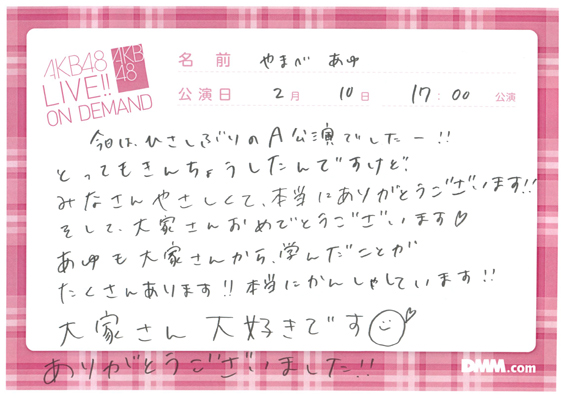 AKB48
LIVE!!
ON DEMAND
AKB
48
名前 やまべ あゆ
公演日 2月 10日 17:00 公演
今日は、ひさしぶりのA公演でしたー!!
とってもきんちょうしたんですけど、
みなさんやさしくて、本当にありがとうございます!!
そして、大家さんおめでとうございます♡
あゆも大家さんから、学んだことが
たくさんあります!!本当にかんしゃしています!!
大家さん 大好きです
ありがとうございました!!
DMM.com